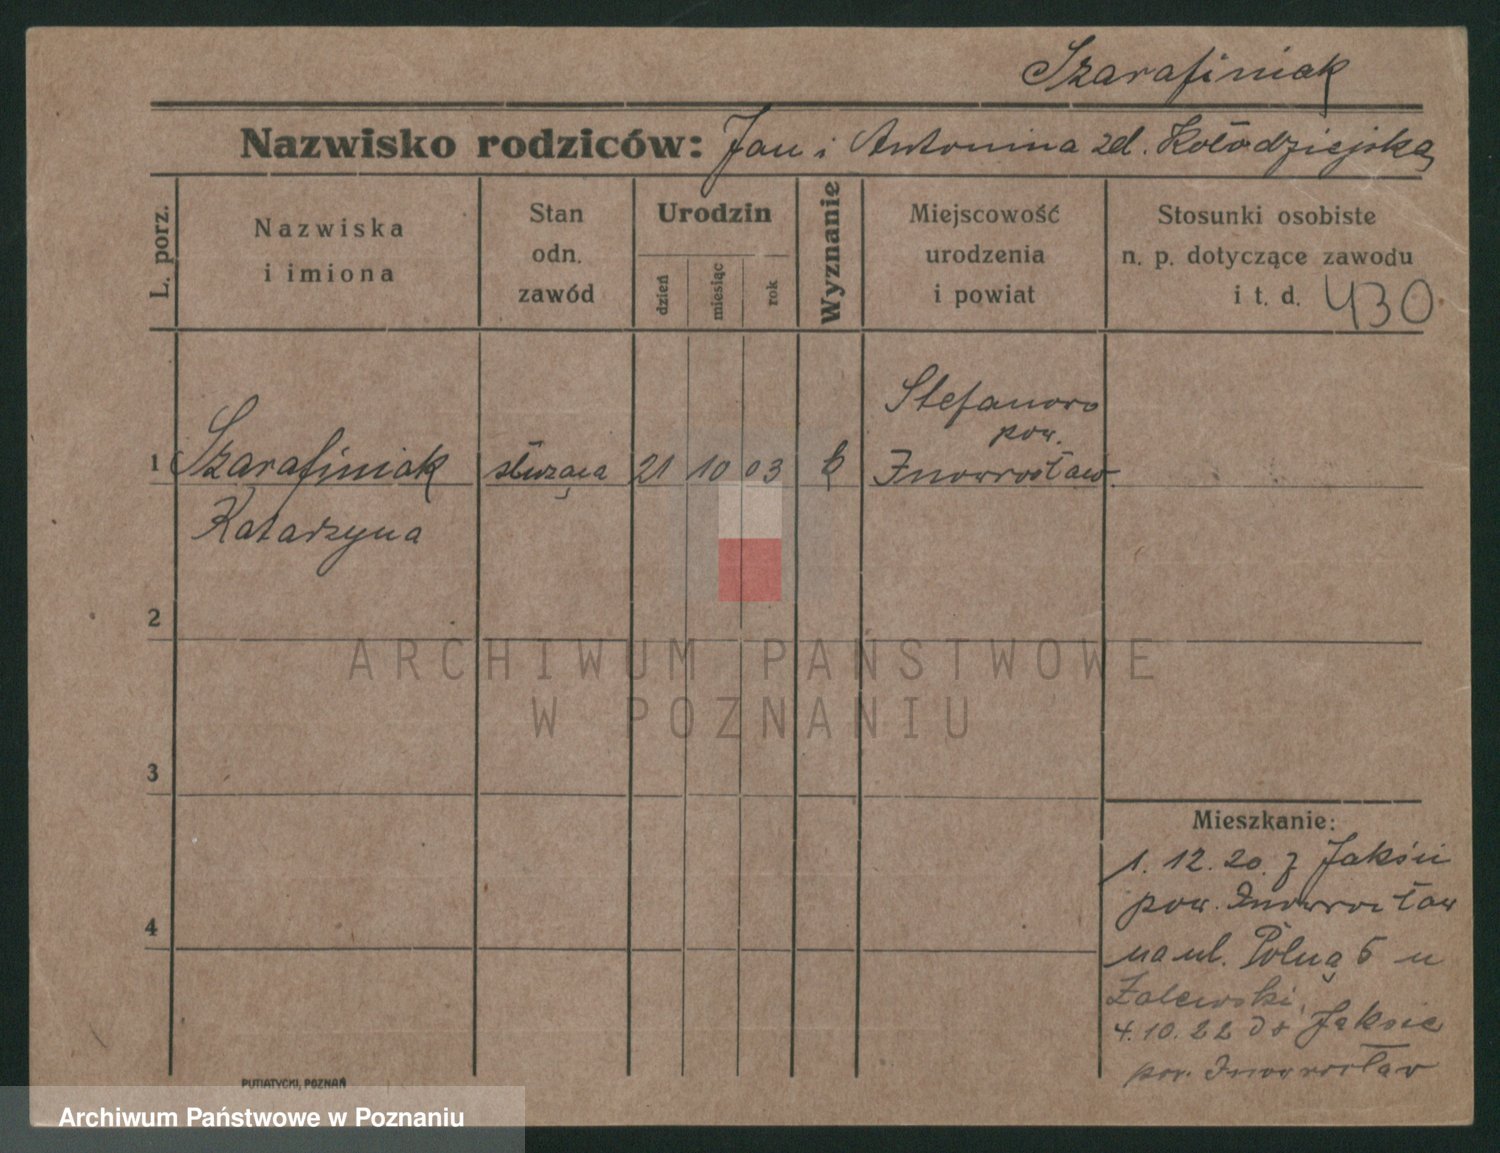 Szarafiniak
Nazwisko rodziców: Jan i Antonina zd. Kołodziejska
L. porz.
Nazwiska
i imiona
Stan
odn.
zawód
Urodzin
dzień
miesiąc
rok
Wyznanie
Miejscowość
urodzenia
i powiat
Stosunki osobiste
n. p. dotyczące zawodu
i t. d. 430
Stefanowo
pow.
1 Szarafiniak służąca 21 10 03 k Inowrocław
Katarzyna
2
3
4
ARCHIWUM PAŃSTWOWE
W POZNANIU
Mieszkanie:
1. 12. 20. z Jaksic
pow. Inowrocław
na ul. Polną 5 u
Zalewski,
4. 10. 22 do Jaksic
pow. Inowrocław
PUTIATYCKI, POZNAŃ
Archiwum Państwowe w Poznaniu